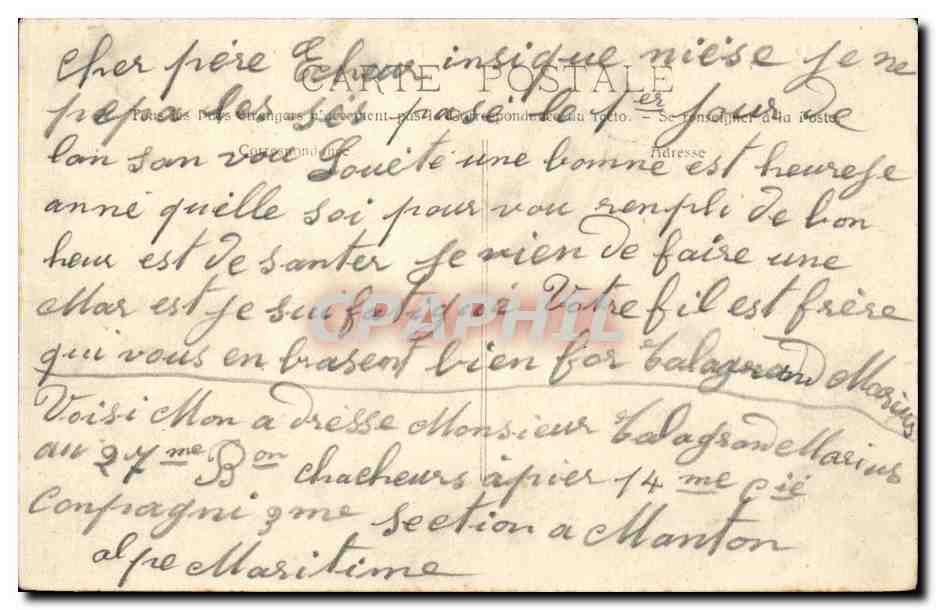 CARTE POSTALE
Tous les Pays étrangers n'acceptent pas la Correspondance au recto. - Se renseigner à la Poste
Correspondance
Adresse
Cher père insique nièse je ne
les pasé le 1er Jour de
lan san vou Souété une bonne est heurese
anné quelle soi pour vou renpli de bon
heur est de santer je vien de faire une
Mar est je sui fatigué Votre fil est frère
qui vous en brasent bien for Talagrand Marius
Voisi Mon adresse Monsieur Talagrand Marius
au 27me Bon chacheurs àpier 14me cié
Conpagni 3me section a Manton
alpe Maritime
CPAPHIL